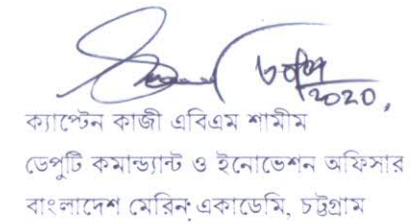 2020.
ক্যাপ্টেন কাজী এবিএম শামীম
ডেপুটি কমান্ড্যান্ট ও ইনোভেশন অফিসার
বাংলাদেশ মেরিন একাডেমি, চট্টগ্রাম